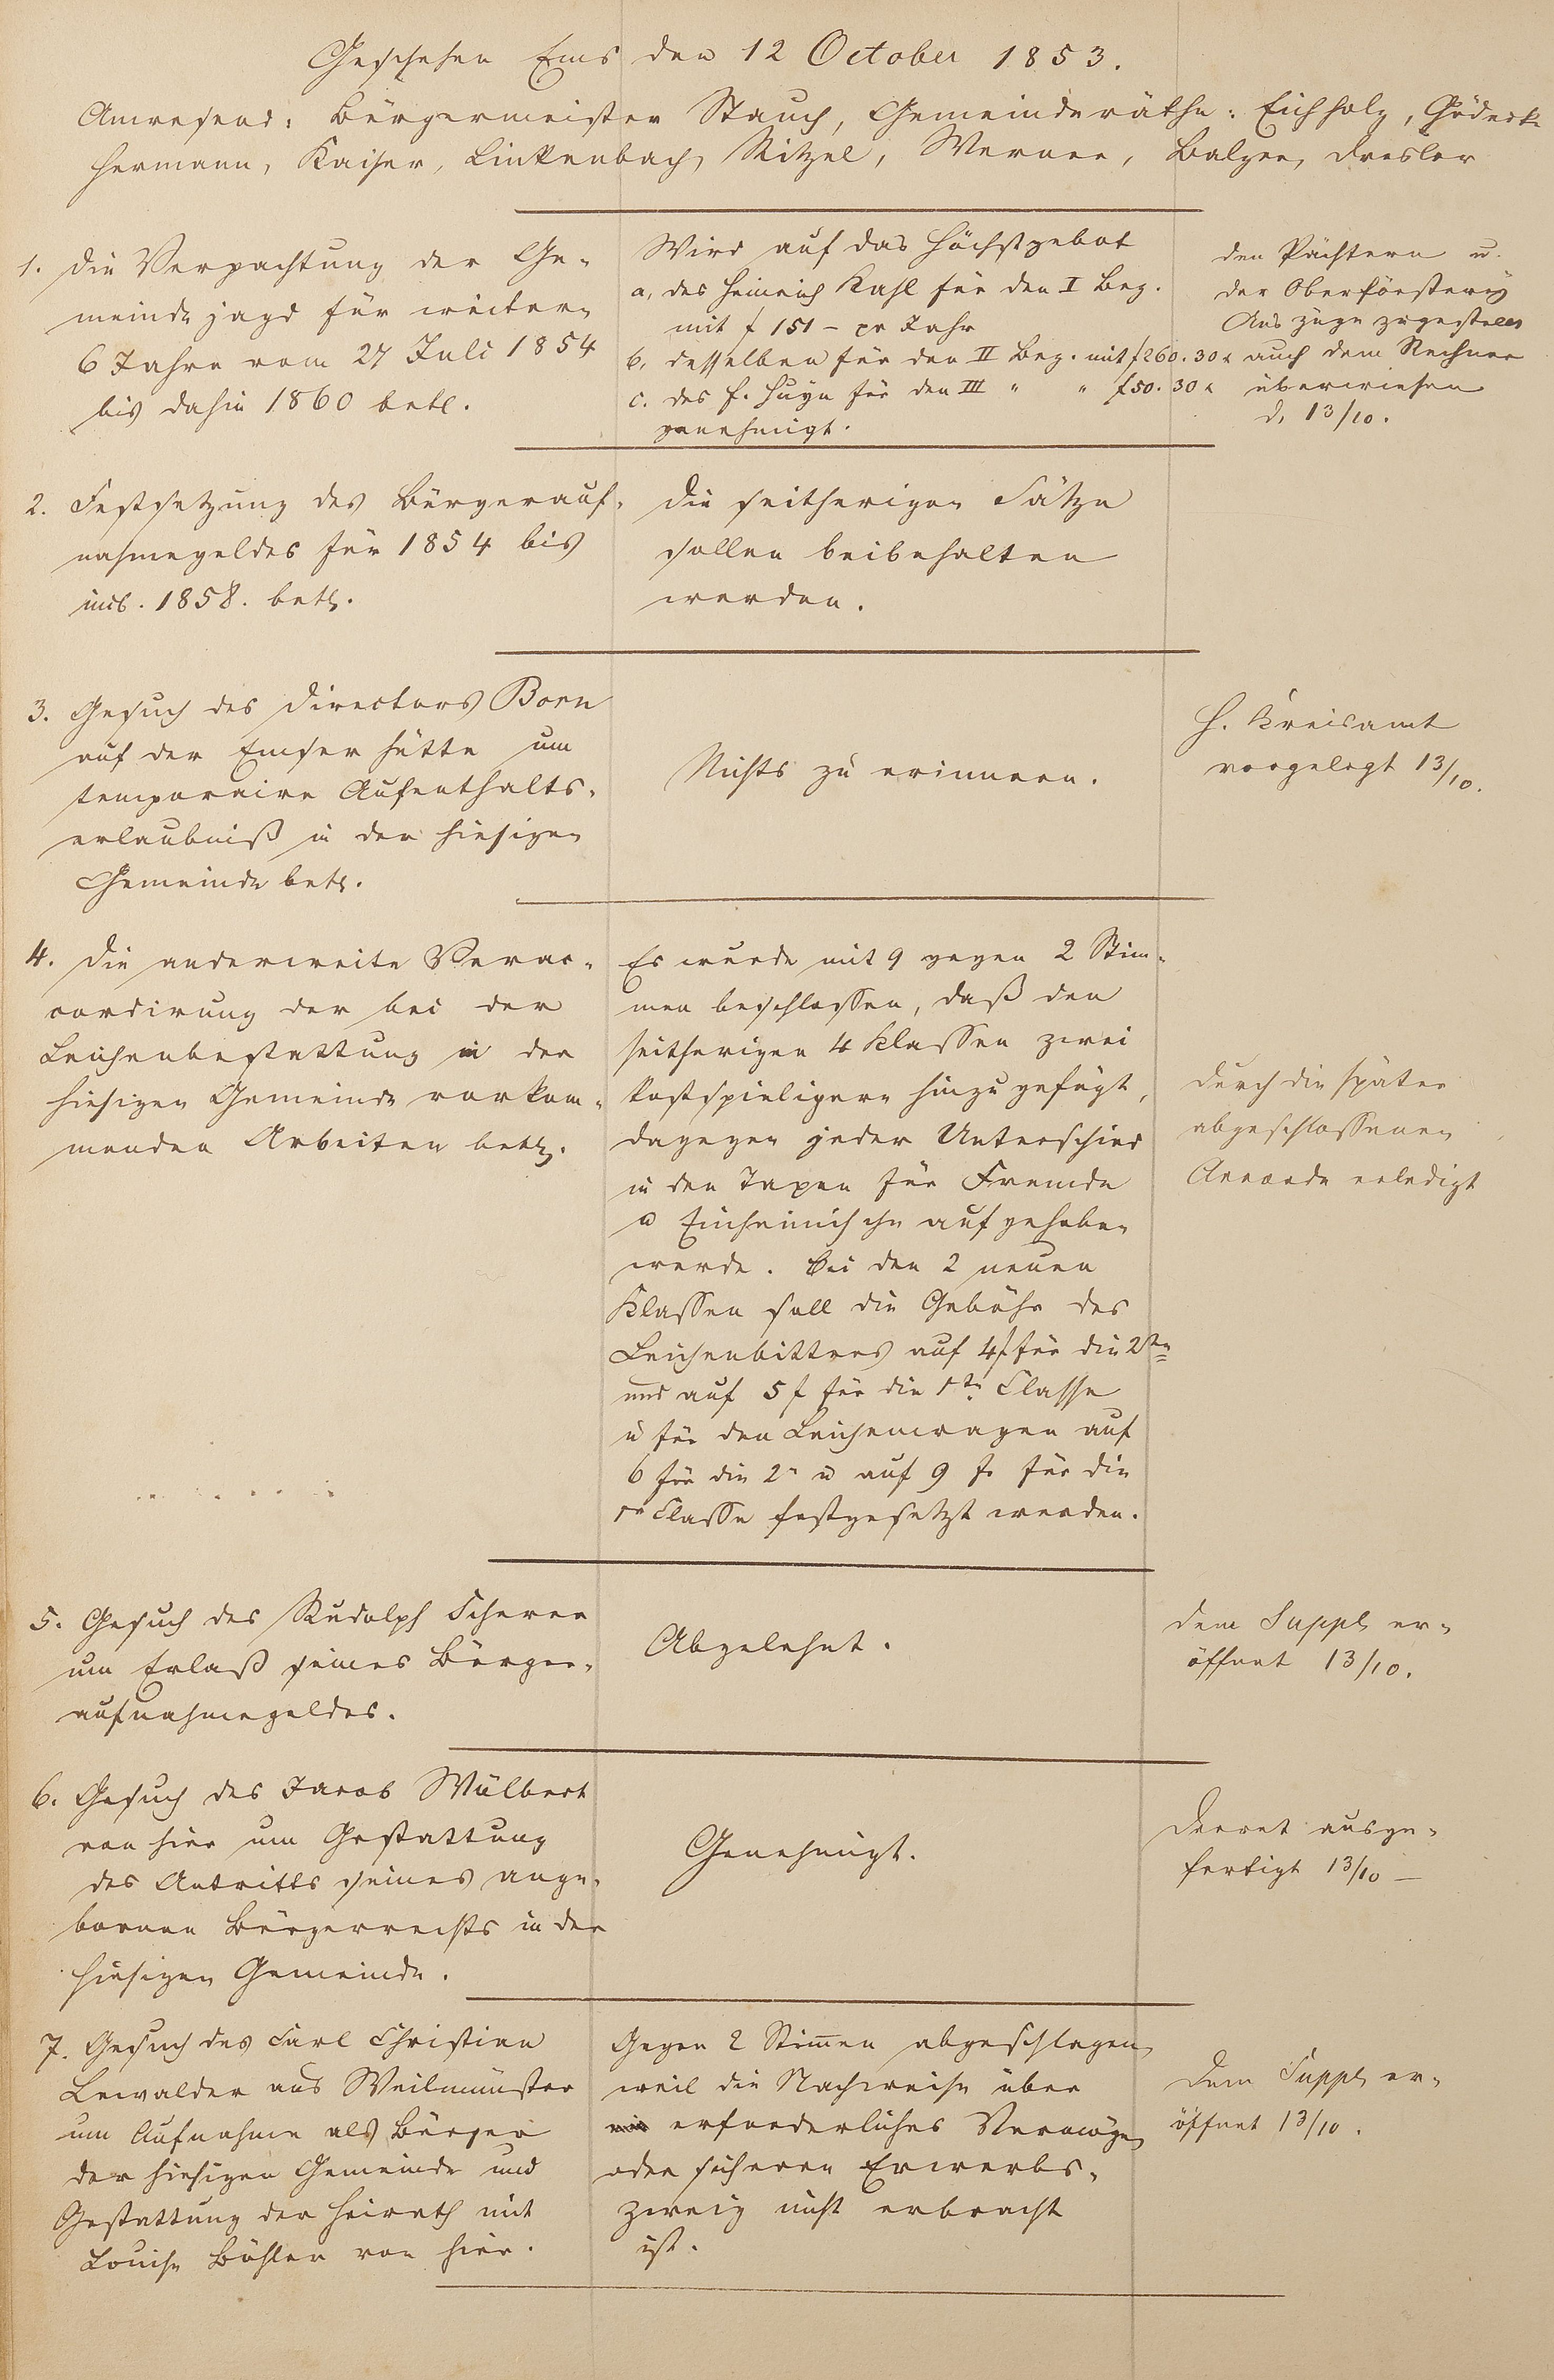 Geschehen Ems den 12 October 1853.
Anwesend: Bürgermeister Stauch, Gemeinderäthe: Eichholz, Gödecke
Hermann, Kaiser, Linkenbach, Ritzel, Werner, Balzer, Dresler
1. Die Verpachtung der Ge-
meinde jagd für weitere
6 Jahre vom 27 Juli 1854
bis dahin 1860 betr.
Wird auf das Höchstgebot
a, des Heinrich Kahl für den I Bez.
mit f 151 – pr Jahr
b, desselben für den II Bez. mit f 260. 30 x
c. des F. Huyn für den III " " f 50. 30 x
genehmigt.
den Pächtern u.
der Oberförsterey
Auszüge zugestellt
auch dem Rechner
überwiesen
d. 13/10.
2. Festsetzung des Bürgerauf-
nahmegeldes für 1854 bis
incl. 1858. betr.
Die seitherigen Sätze
sollen beibehalten
werden.
3. Gesuch des Directors Born
auf der Emser Hütte um
temporaire Aufenthalts-
erlaubniß in der hiesigen
Gemeinde betr.
Nichts zu erinnern.
H. Kreisamt
vorgelegt 13/10.
4. Die anderweite Verac-
cordirung der bei der
Leichenbestattung in der
hiesigen Gemeinde vorkom-
menden Arbeiten betr.
Es wurde mit 9 gegen 2 Stim-
men beschlossen, daß den
seitherigen 4 Klassen zwei
kostspieligere hinzugefügt,
dagegen jeder Unterschied
in den Taxen für Fremde
u Einheimische aufgehoben
werde. Bei den 2 neuen
Klassen soll die Gebühr des
Leichenbitters auf 4 f für die 2te
und auf 5 f für die 1te Classe
u für den Leichenwagen auf
6 für die 2e u auf 9 f. für die
1e Classe festgesetzt werden.
Durch die später
abgeschlossenen
Accorde erledigt
5. Gesuch des Rudolph Scherer
um Erlaß seines Bürger-
aufnahmegeldes.
Abgelehnt.
Dem Suppl. er-
öffnet 13/10.
6. Gesuch des Jacob Wülbert
von hier um Gestattung
des Antritts seines ange-
bornen Bürgerrechts in der
hiesigen Gemeinde.
Genehmigt.
Decret ausge-
fertigt 13/10 –
7. Gesuch des Carl Christian
Lewalder aus Weilmünster
um Aufnahme als Bürger
der hiesigen Gemeinde und
Gestattung der Heirath mit
Louise Bühler von hier.
Gegen 2 Stimmen abgeschlagen,
weil die Nachweise über
erforderliches Vermögen
oder sicheren Erwerbs-
zweig nicht erbracht
ist.
Dem Suppl. er-
öffnet 13/10.